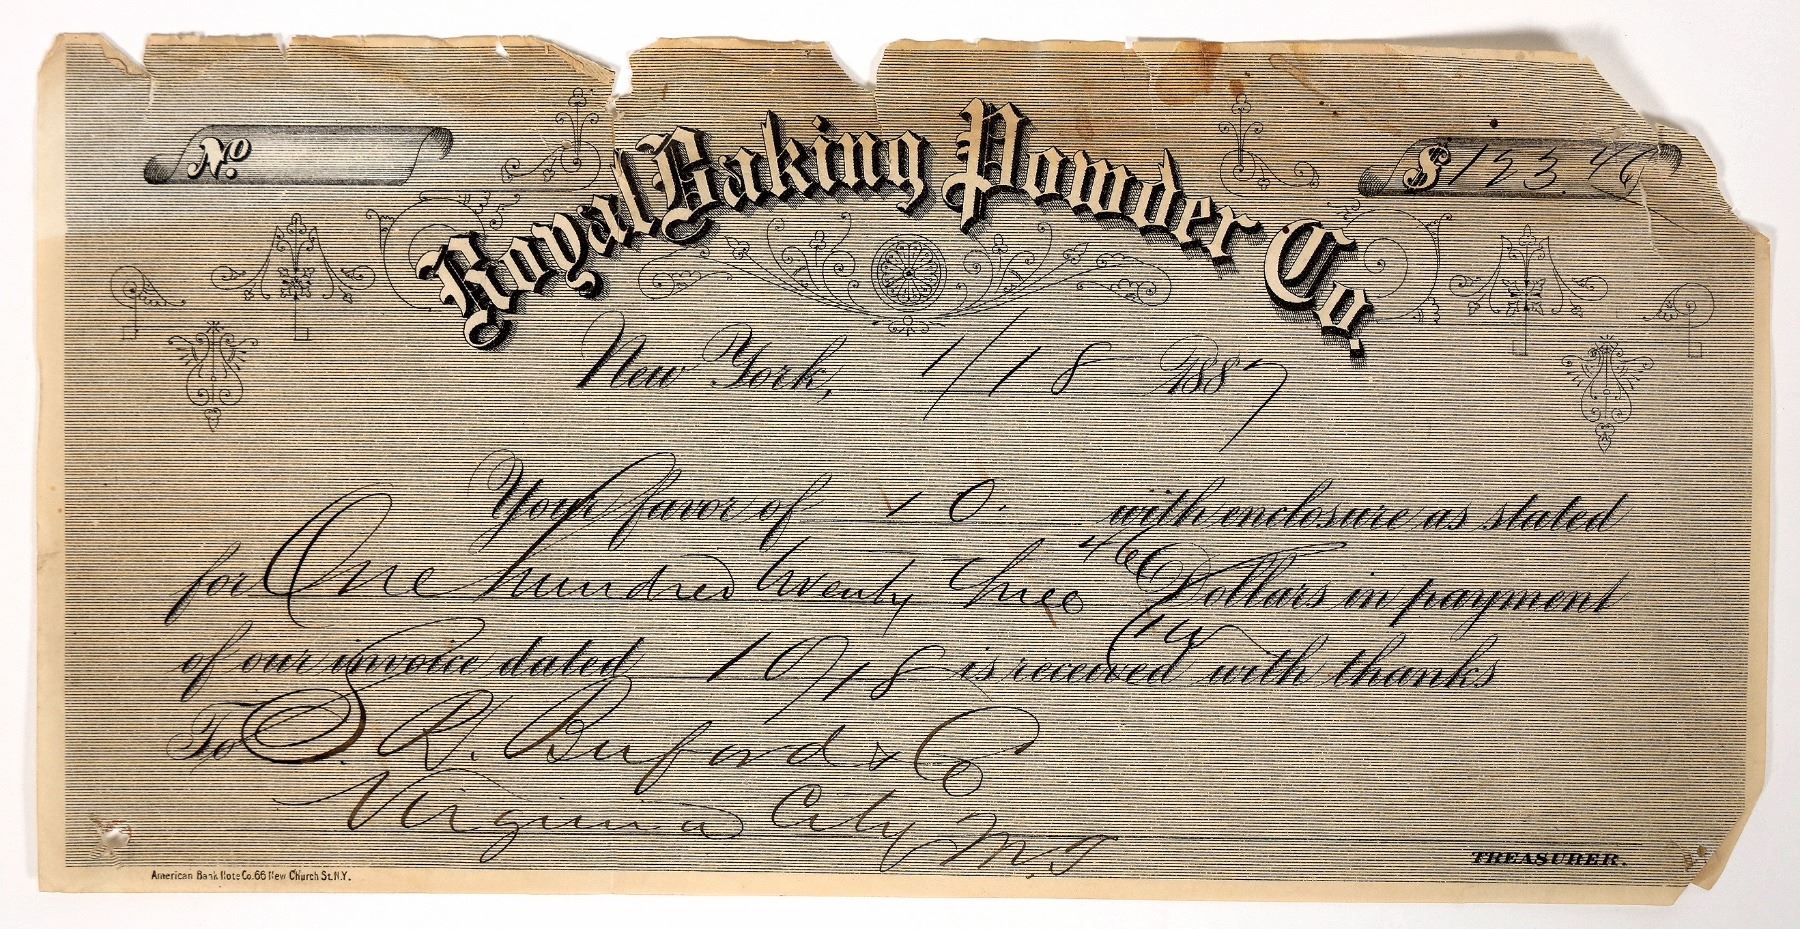 Royal Baking Powder Co.
No.
$123.46
New York, 1/18 1887
Your favor of 10. with enclosure as stated
for One hundred twenty three 46 Dollars in payment
of our invoice dated 10/18 is received with thanks
To S. R. Buford & Co
Virginia City M.T
TREASURER.
American Bank Note Co. 66 New Church St. N.Y.